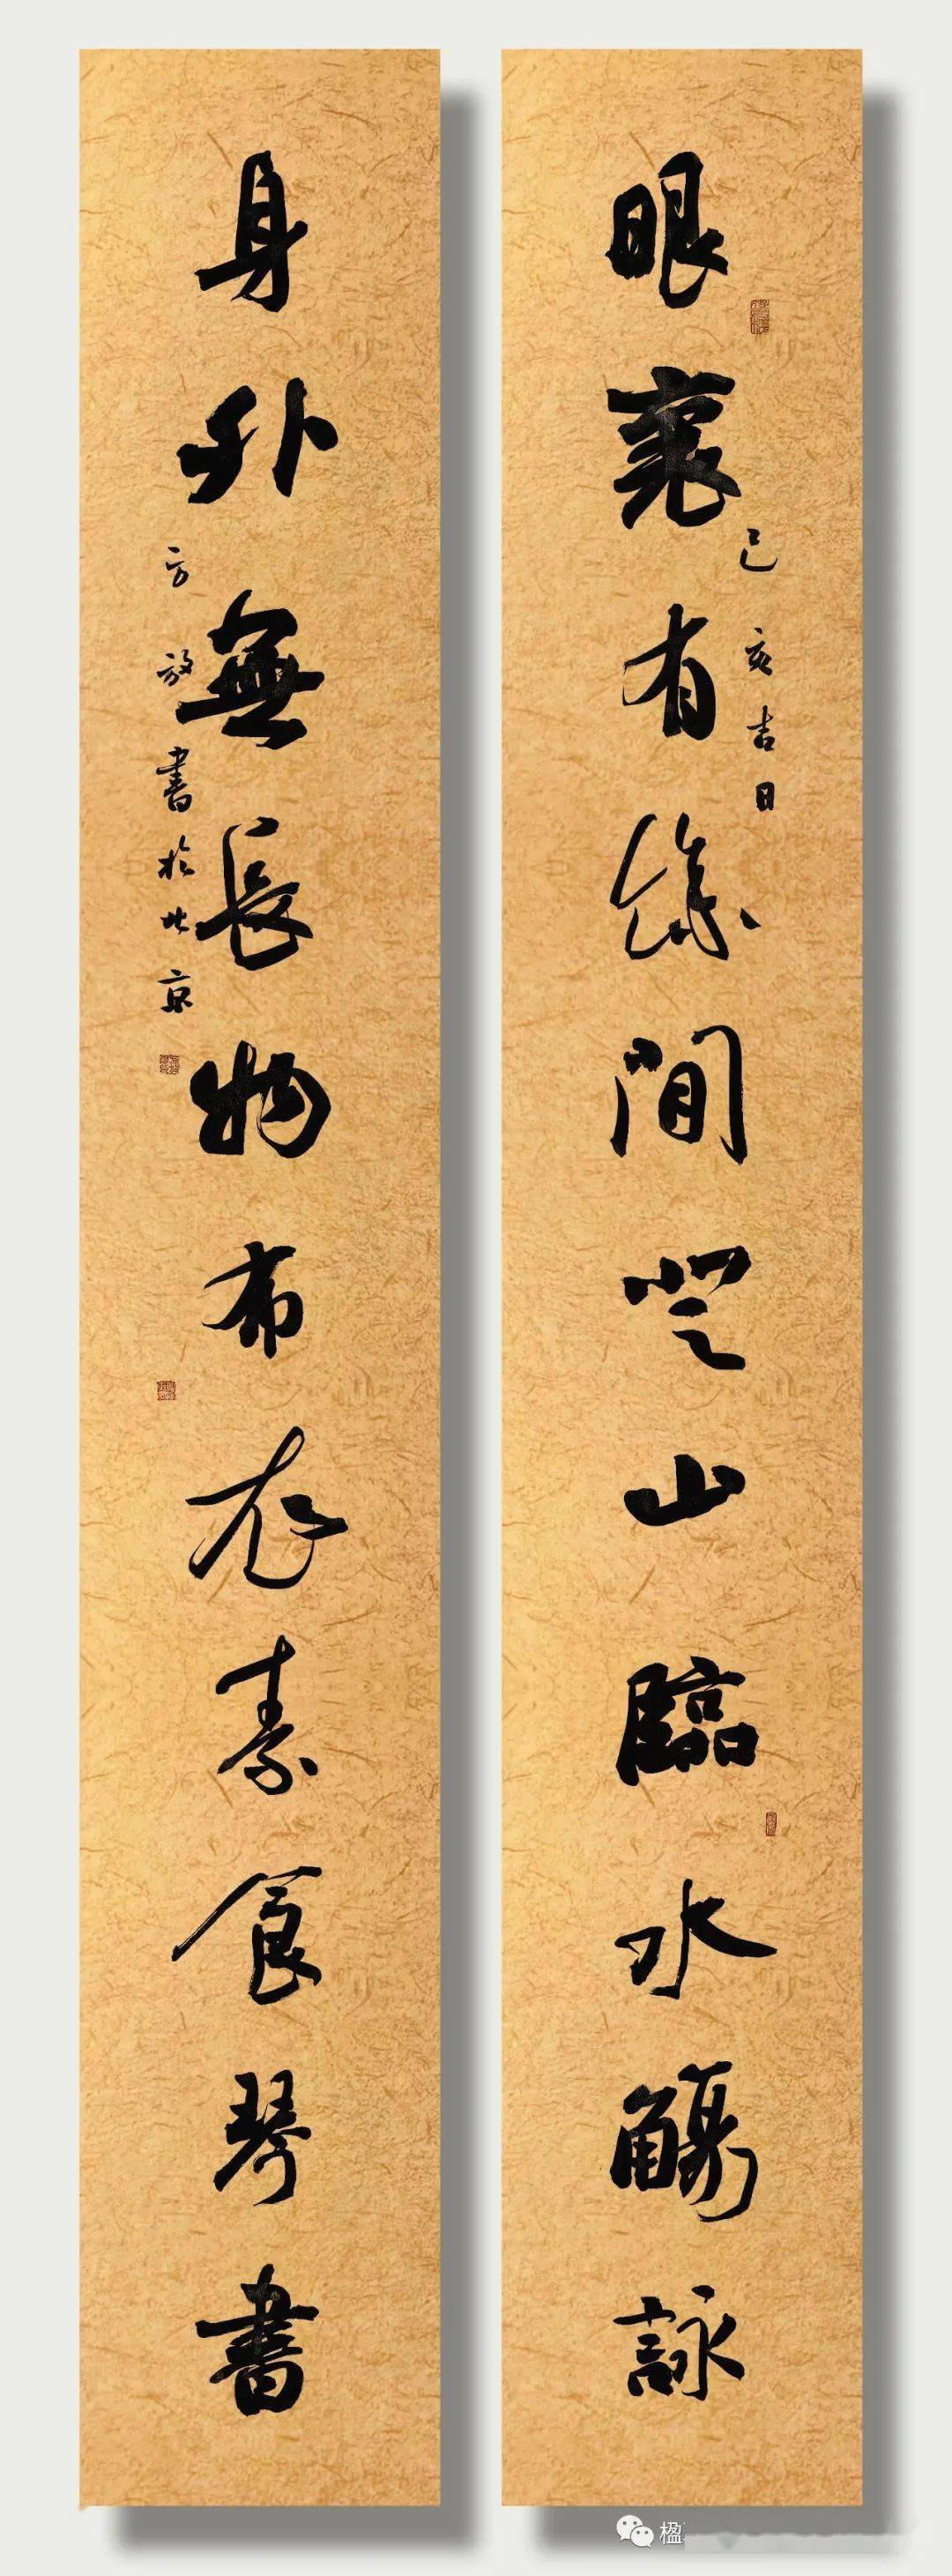 眼裏有餘閒登山臨水觴詠
己亥吉日
身外無長物布衣素食琴書
方放書於北京
楹